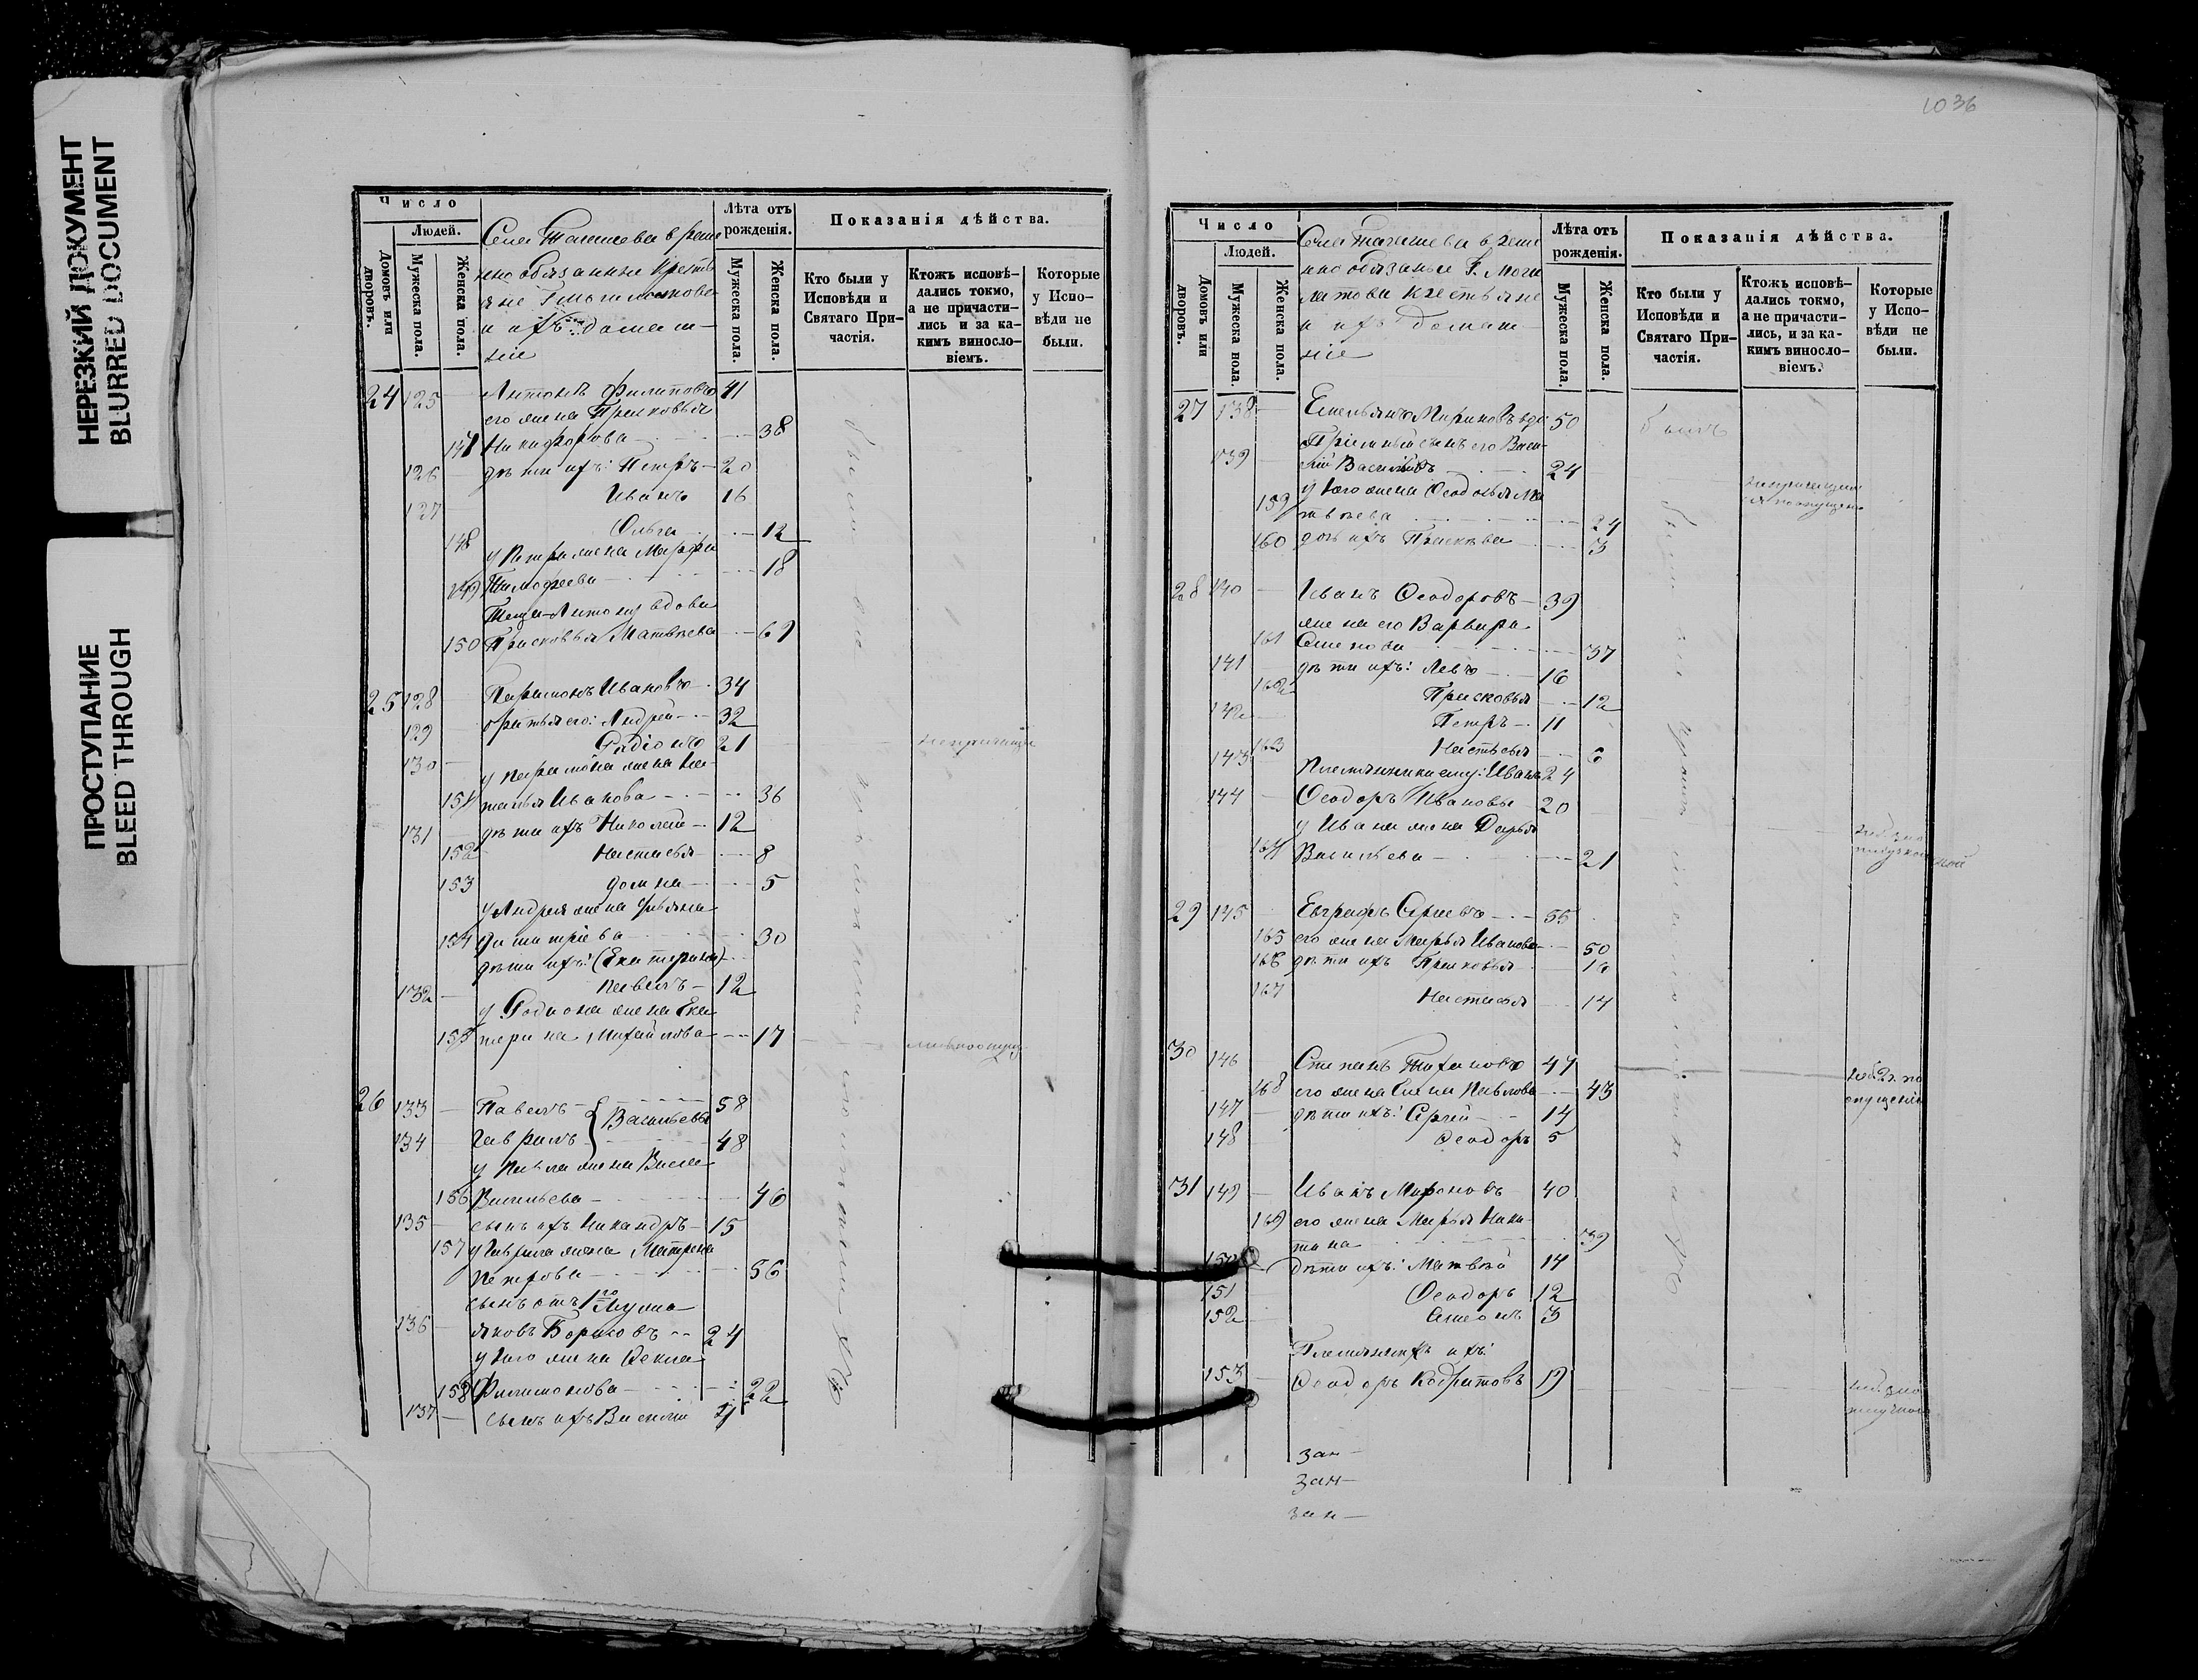 НЕРЕЗКИЙ ДОКУМЕНТ
BLURRED DOCUMENT
ПРОСТУПАНИЕ
BLEED THROUGH
Число
Людей.
Домовъ или дворовъ.
Мужеска пола.
Женска пола.
Села временно обязанные крестьяне
и ихъ домашніе
Лѣта отъ рожденія.
Мужеска пола.
Женска пола.
Показанія дѣйства.
Кто были у Исповѣди и Святаго Причастія.
Ктожъ исповѣдались токмо, а не причастились и за какимъ винословіемъ.
Которые у Исповѣди не были.
24 125 Антонъ Филиповъ 41
его жена Прасковья
147 Никифорова 38
126 дѣти ихъ: Петръ 20
127 Иванъ 16
148 Ольга 12
у Петра жена Марфа
149 Тимофеева 18
Теща Антона вдова
150 Прасковья Матвѣева 69
25 128 Парамонъ Ивановъ 34
129 братья его: Андрей 32
130 Родіонъ 21
у Парамона жена На-
151 талья Иванова 36
131 дѣти ихъ Николай 12
152 Настасья 8
153 Домна 5
у Андрея жена Ульяна
154 Димитріева 30
дѣти ихъ: (Екатерина)
132 Павелъ 12
у Родиона жена Ека-
155 терина Михайлова 17
26 133 Павелъ 58
Васильевы
134 Гаврилъ 48
у Павла жена Васса
156 Васильева 46
135 сынъ ихъ Никандръ 15
157 у Гаврила жена Матрена
Петрова 56
сынъ отъ 1го мужа
136 Яковъ Борисовъ 24
у него жена Фекла
158 Филимонова 22
137 сынъ ихъ Василій
1036
Число
Людей.
Домовъ или дворовъ.
Мужеска пола.
Женска пола.
Села временно обязанные Г.
крестьяне
и ихъ домашніе
Лѣта отъ рожденія.
Мужеска пола.
Женска пола.
Показанія дѣйства.
Кто были у Исповѣди и Святаго Причастія.
Ктожъ исповѣдались токмо, а не причастились, и за какимъ винословіемъ.
Которые у Исповѣди не были.
27 138 Емельянъ Марковъ вдо 50 былъ
Пріемный сынъ его Васи-
139 лій Васильевъ 24
у него жена Ѳеодосья Ма-
159 твѣева 24
160 дочь ихъ Прасковья 3
28 140 Иванъ Ѳеодоровъ 39
жена его Варвара
161 Семенова 37
141 дѣти ихъ: Левъ 16
162 Прасковья 12
142 Петръ 11
163 Настасья 6
143 Племянники ему: Иванъ 24
144 Ѳеодоръ Ивановы 20
у Ивана жена Дарья
164 Васильева 21
29 145 Евграфъ 55
165 его жена Марья Иванова 50
166 дѣти ихъ Прасковья 16
167 Настасья 14
30 146 Степанъ 47
168 его жена Елена Павлова 43
147 дѣти ихъ: Сергѣй 14
148 Ѳеодоръ 5
31 149 Иванъ Мироновъ 40
169 его жена Марья Ники-
тина 39
150 дѣти ихъ: Матвѣй 14
151 Ѳеодоръ 12
152 Семенъ 3
Племянникъ ихъ:
153 Ѳеодоръ 19
зан
зан
зан